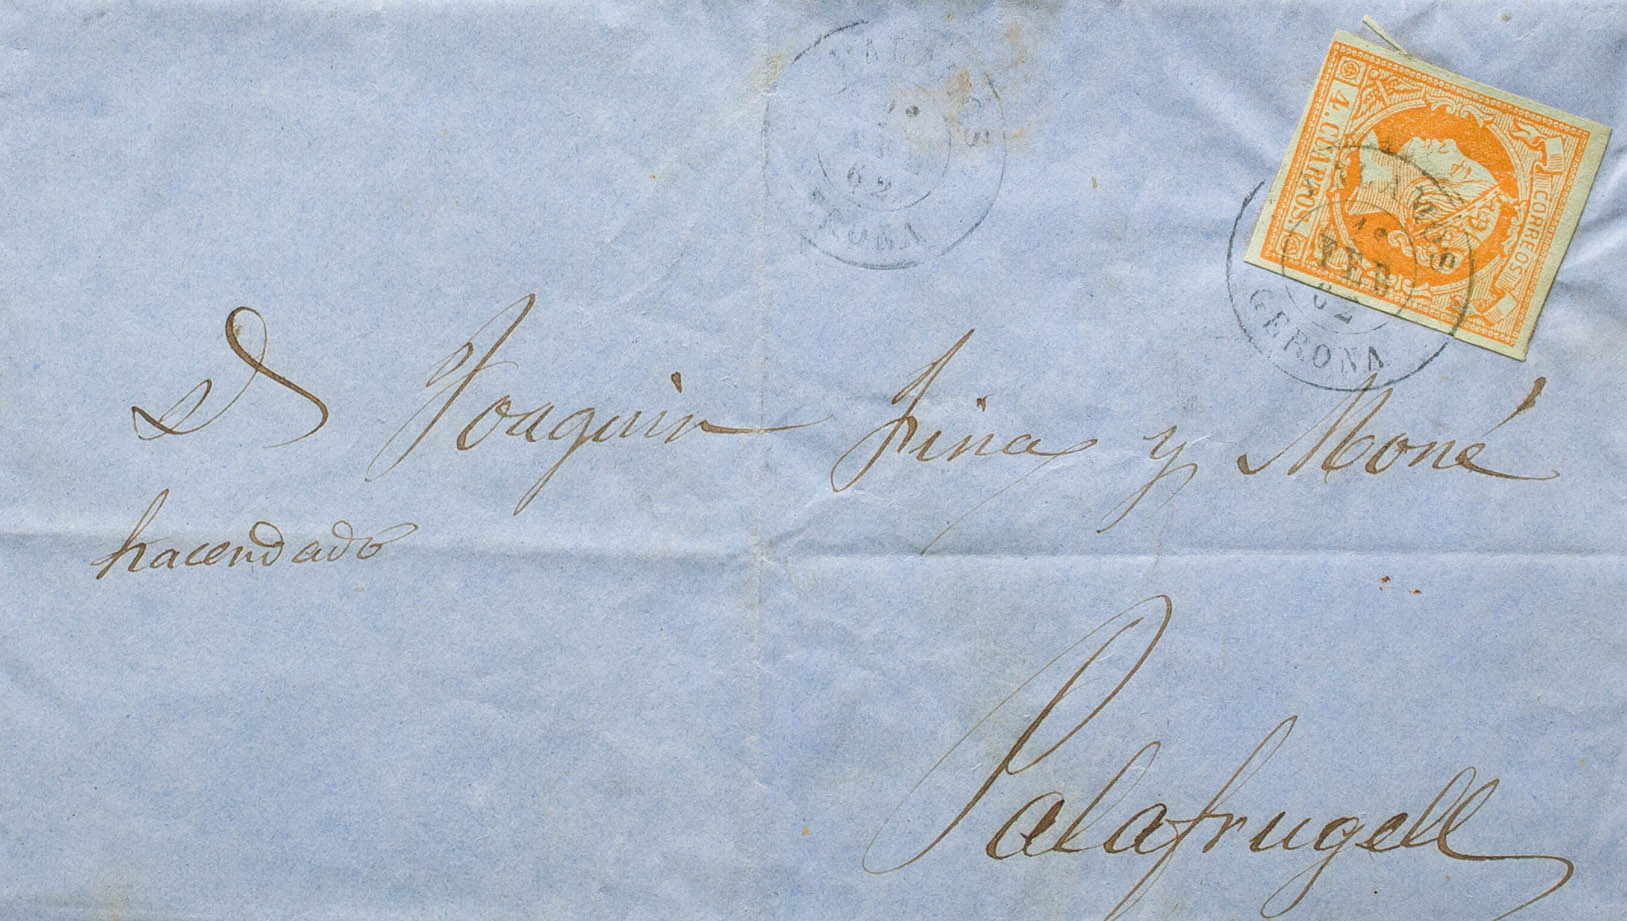 62
4. CUARTOS.
CORREOS.
FEB
62
GERONA
D Joaquin Fina y Moné
hacendado
Palafrugell